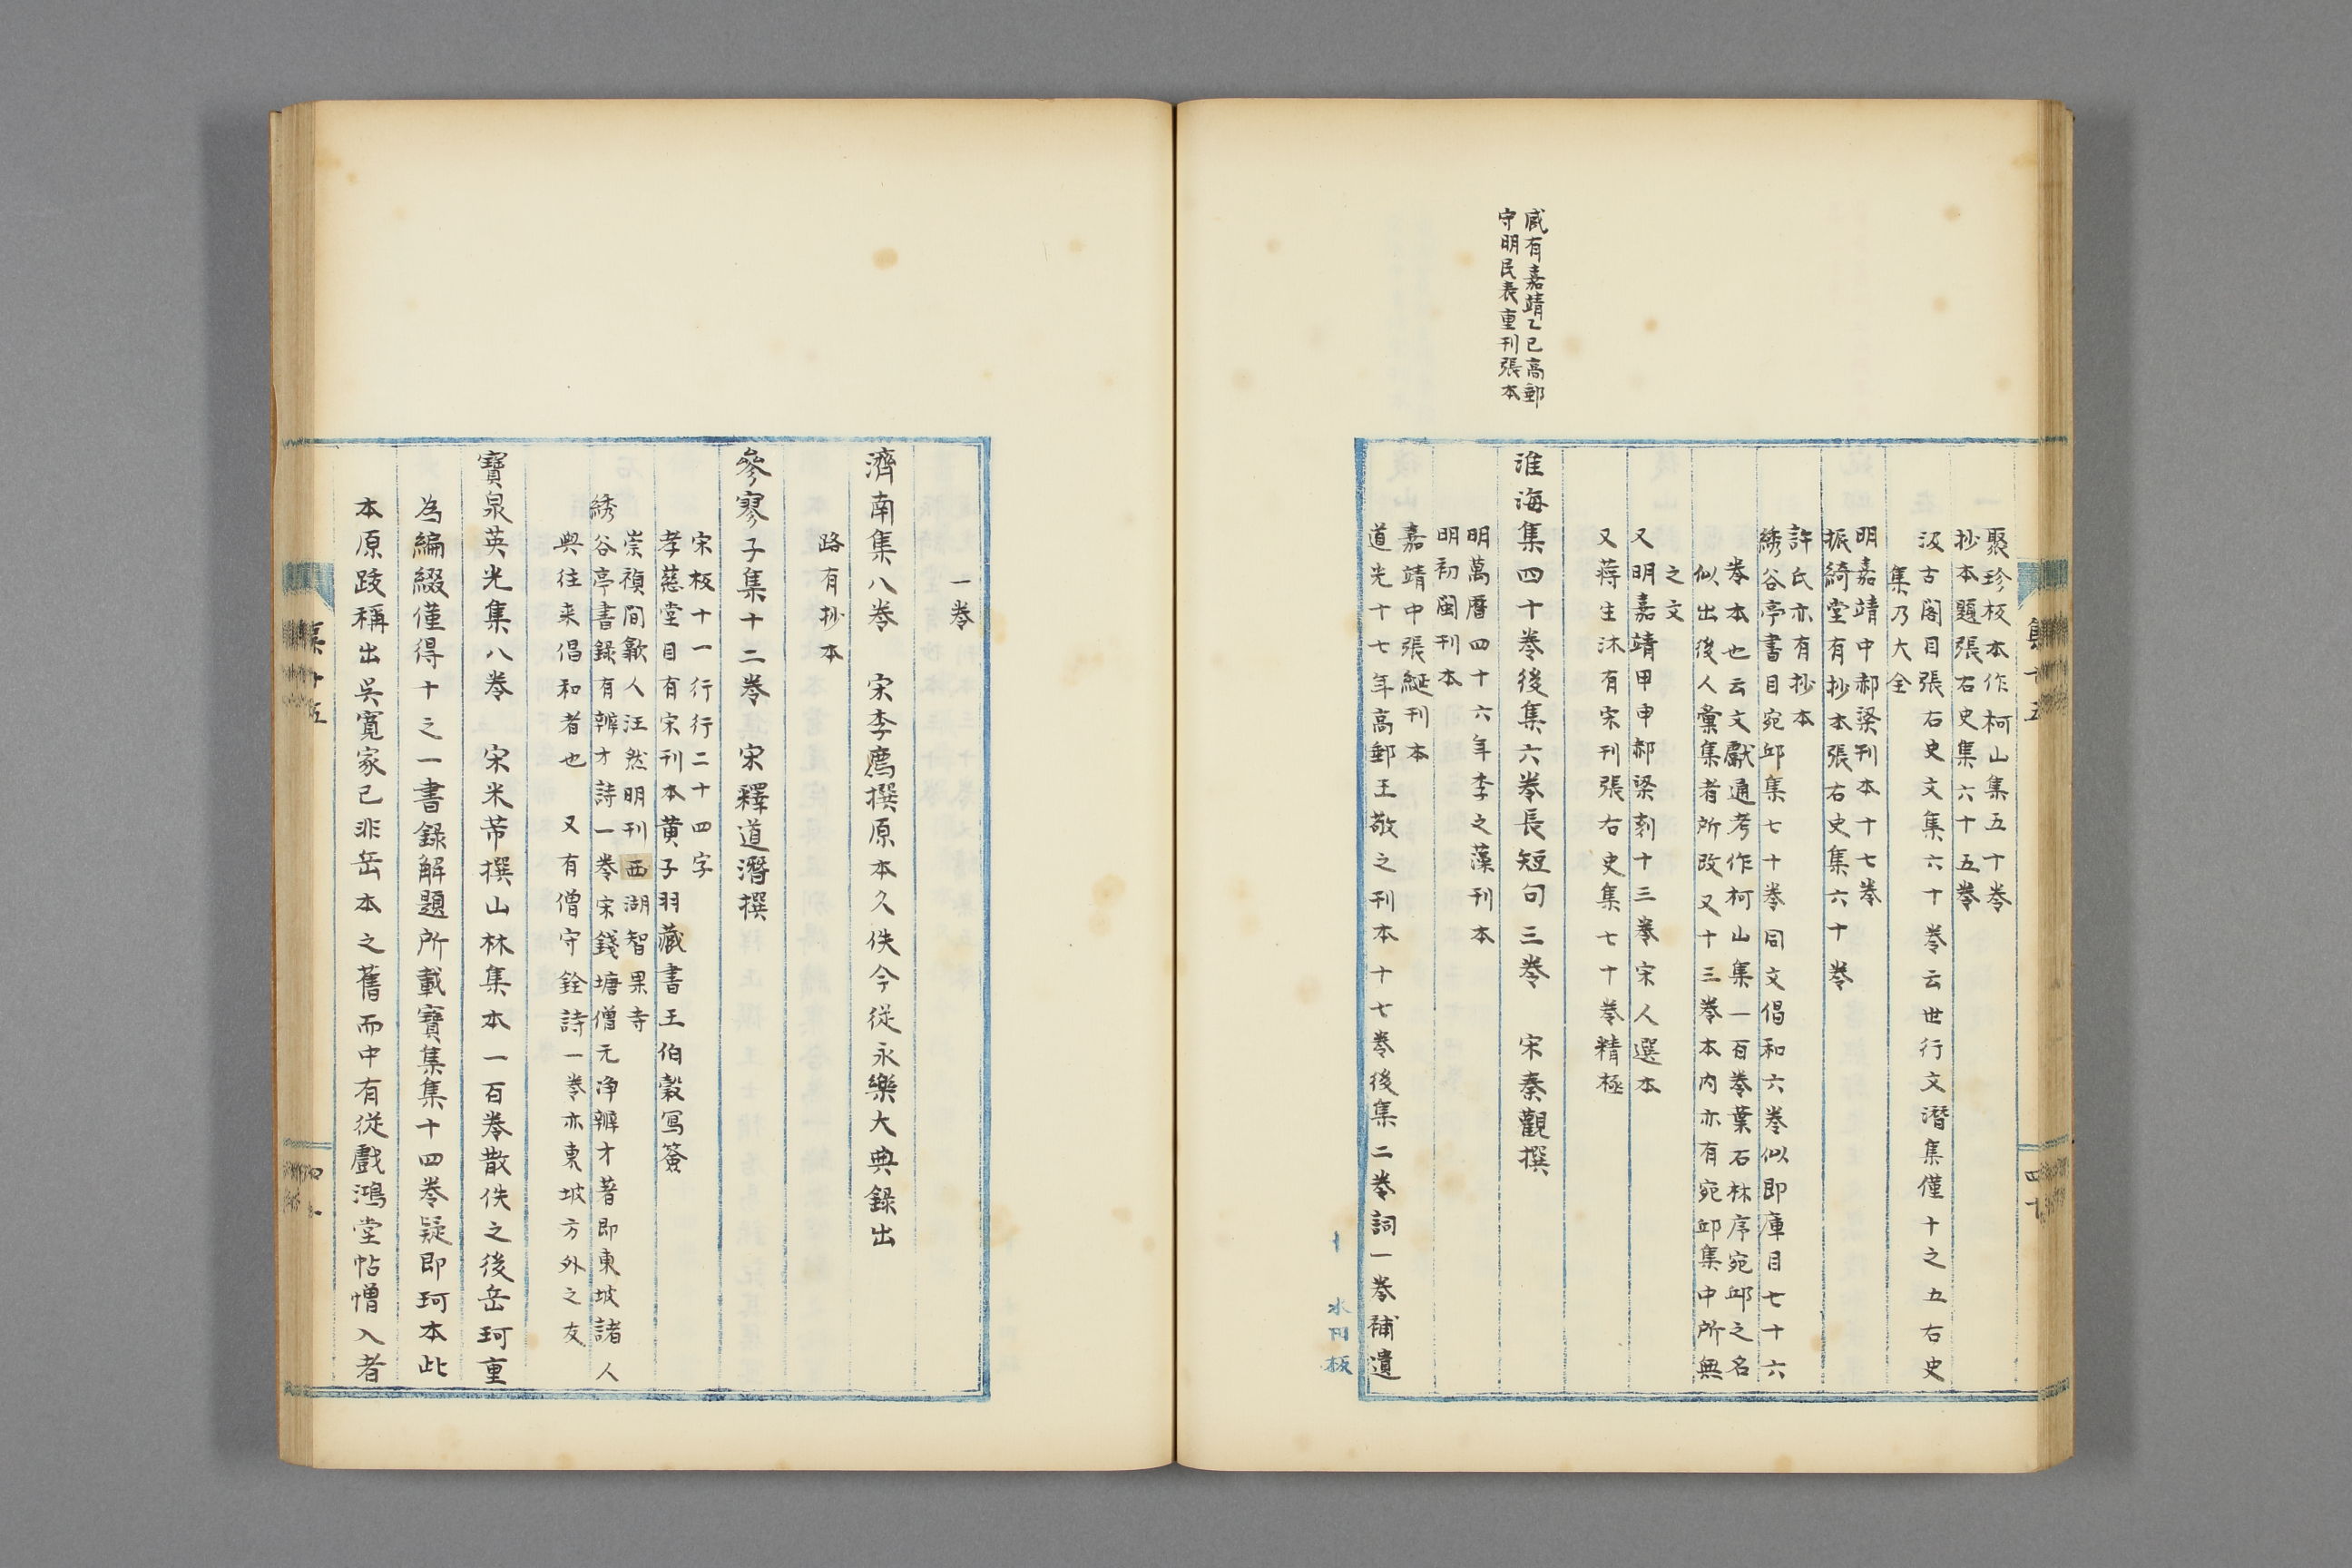 聚珍板本作柯山集五十卷
抄本題張右史集六十五卷
汲古閣目張右史文集六十卷云世行文潛集僅十之五右史
集乃大全
明嘉靖中郝梁刊本十七卷
振綺堂有抄本張右史集六十卷
許氏亦有抄本
綉谷亭書目宛邱集七十卷同文倡和六卷似即庫目七十六
卷本也云文獻通考作柯山集一百卷葉石林序宛邱之名
似出後人彙集者所改又十三卷本內亦有宛邱集中所無
之文
又明嘉靖甲申郝梁刻十三卷宋人選本
又蔣生沐有宋刊張右史集七十卷精極
淮海集四十卷後集六卷長短句三卷　宋秦觀撰
咸有嘉靖乙巳高郵
守明民表重刊張本
明萬曆四十六年李之藻刊本
明初閩刊本
嘉靖中張綖刊本
道光十七年高郵王敬之刊本十七卷後集二卷詞一卷補遺
集十五
四十
一卷
濟南集八卷　宋李廌撰原本久佚今從永樂大典錄出
路有抄本
參寥子集十二卷　宋釋道潛撰
宋板十一行行二十四字
孝慈堂目有宋刊本黃子羽藏書王伯穀寫簽
崇禎間歙人汪然明刊西湖智果寺
綉谷亭書錄有辨才詩一卷宋錢塘僧元淨辨才著即東坡諸人
與往来倡和者也　又有僧守銓詩一卷亦東坡方外之友
寶泉英光集八卷　宋米芾撰山林集本一百卷散佚之後岳珂重
為編綴僅得十之一書錄解題所載寶集集十四卷疑即珂本此
本原跋稱出吳寬家已非岳本之舊而中有從戲鴻堂帖憎入者
集十五